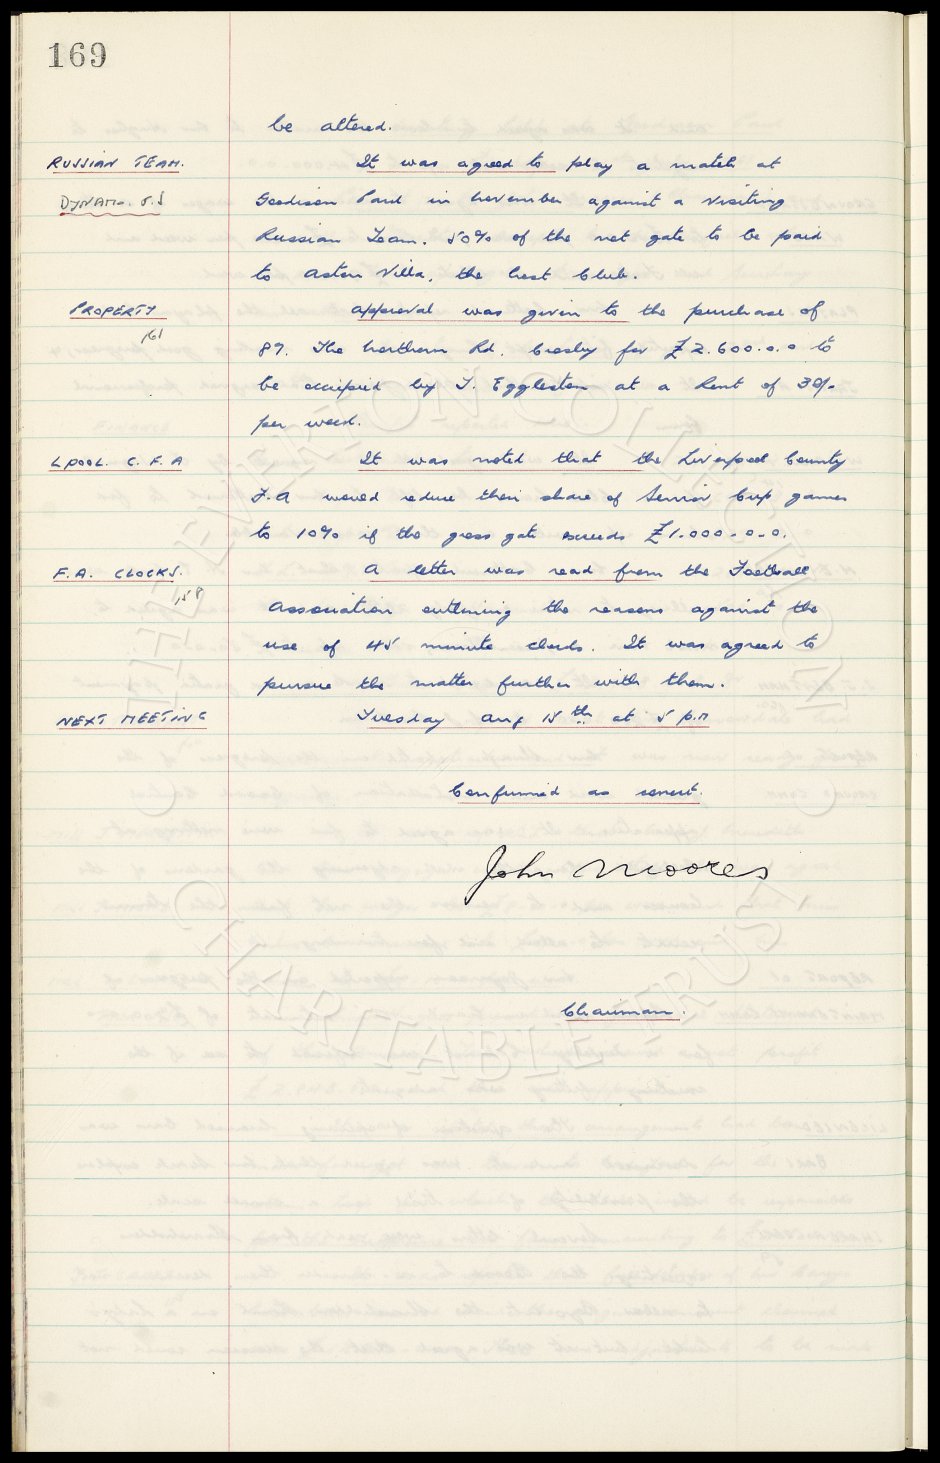 169
be altered.
RUSSIAN TEAM. It was agreed to play a match at
DYNAMO. Goodison Park in November against a visiting
Russian Team. 50% of the net gate to be paid
to Aston Villa, the host Club.
PROPERTY approval was given to the purchase of
161 89. The Northern Rd. Crosby for £2.600.0.0 to
be occupied by T. Eggleston at a Rent of 30/-
per week.
LPOOL. C. F. A It was noted that the Liverpool County
F.A would reduce their share of Senior Cup games
to 10% if the gross gate exceeds £1.000-0-0.
F.A. CLOCKS. A letter was read from the Football
158 Association outlining the reasons against the
use of 45 minute clocks. It was agreed to
pursue the matter further with them.
NEXT MEETING Tuesday Aug 15th at 5 p.m
Confirmed as correct.
John Moores
Chairman.
THE EVERTON COLLECTION
CHARITABLE TRUST